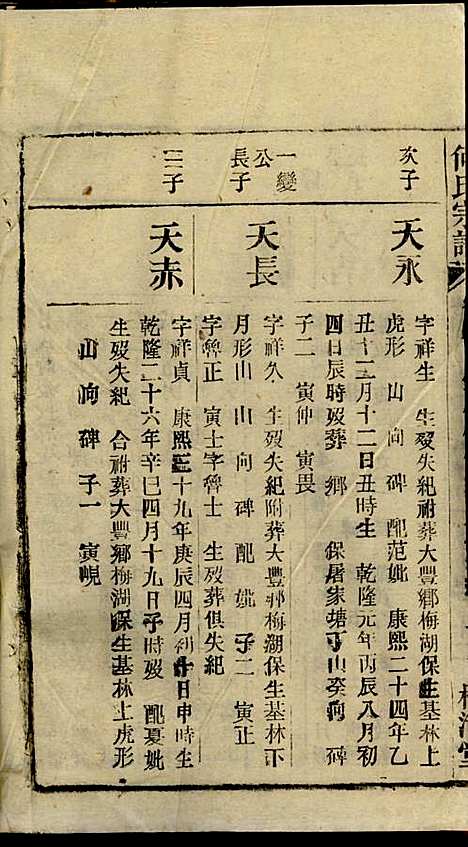 氏宗譜
次子
天永
字祥生　生歿失紀祔葬大豐鄉梅湖保生基林上
虎形　山　向　碑　配范妣　康熙二十四年乙
丑十二月十二日丑時生　乾隆元年丙辰八月初
四日辰時歿葬　鄉　保屠家塘丁山癸向　碑
子二　寅仲　寅畏
一變
公
長子
天長
字祥久　生歿失紀附葬大豐鄉梅湖保生基林下
月形山　山　向　碑　配　妣　子二　寅正
字魯正　寅士字魯士　生歿葬俱失紀
三子
天赤
字祥貞　康熙三十九年庚辰四月初十日申時生
乾隆二十六年辛巳四月十九日子時歿　配夏妣
生歿失紀　合祔葬大豐鄉梅湖保生基林上虎形
山　向　碑　子一　寅峴